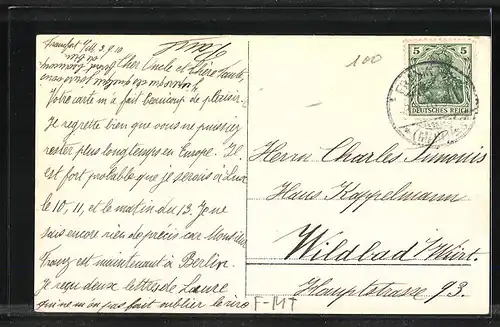 Frankfort a/M 3.9.10
Cher Oncle et Chère Tante,
Votre carte m'a fait beaucoup de plaisir.
Je regrette bien que vous ne puissiez
rester plus longtemps en Europe. Il
est fort probable que je serais à
le 10, 11, et le matin du 13. Je ne
sais encore rien de précis car Monsieur
Franz est maintenant à Berlin.
Je reçu deux lettres de Laure
qui ne m'on pas fait oublier le
100
5 5
DEUTSCHES REICH
Herrn Charles Simonis
Haus Kappelmann
Wildbad i/Würt.
Hauptstrasse 93.
F-MT